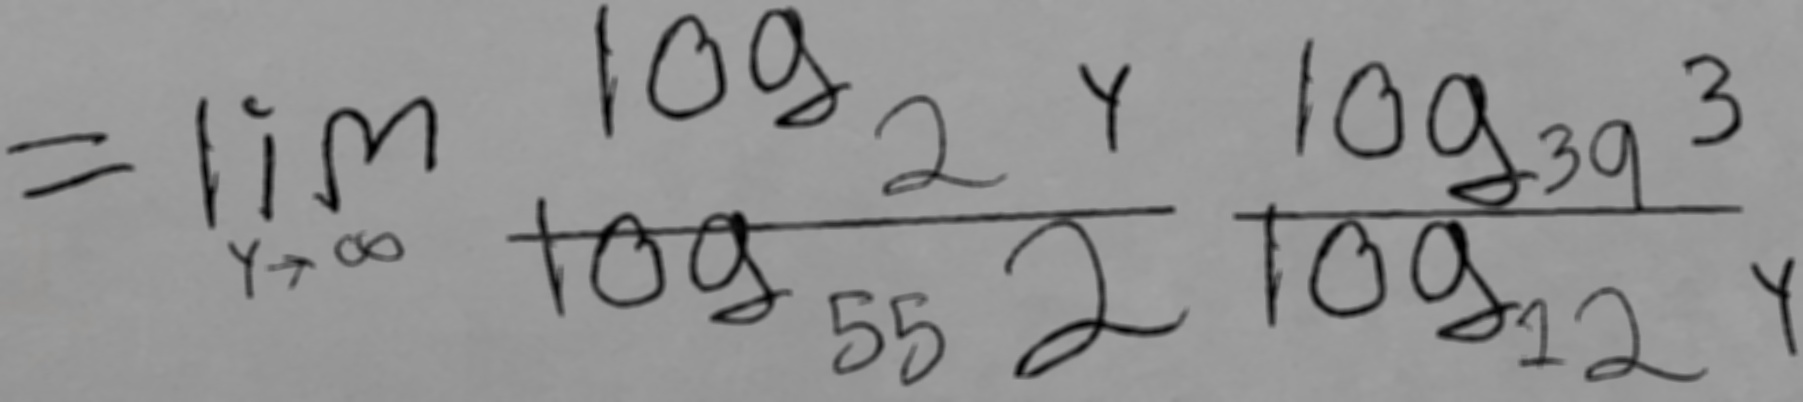 = \lim_{y \to \infty} \frac{\log_{2} y}{\log_{55} 2} \frac{\log_{39} 3}{\log_{12} y}